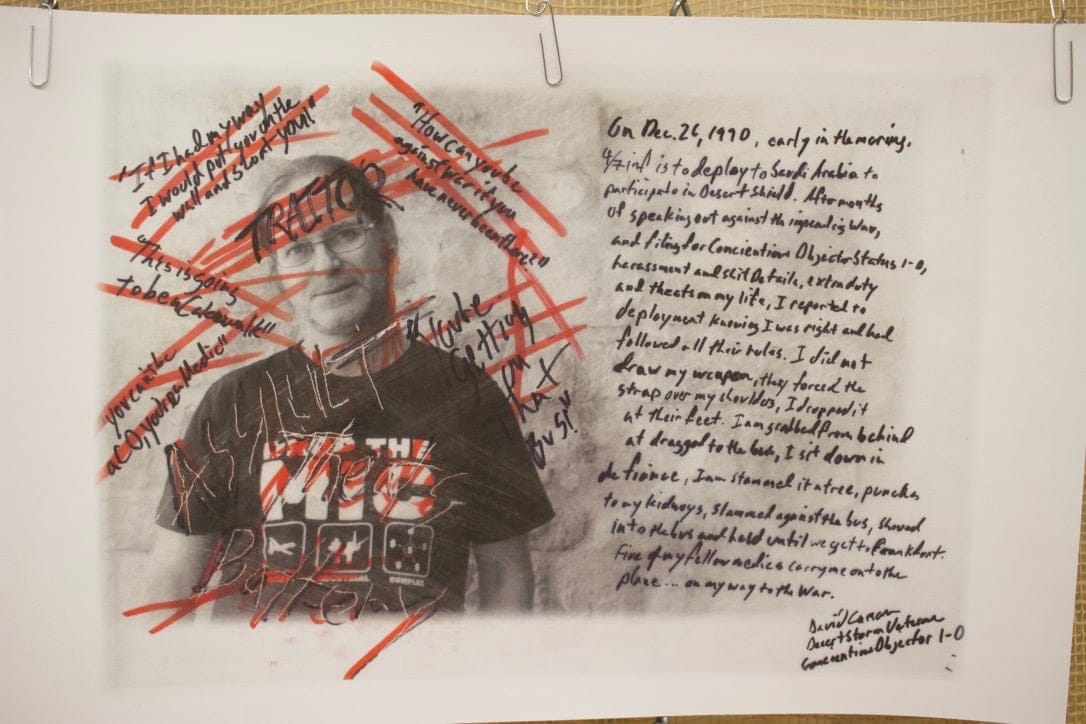 "If I had my way
I would put you on the
wall and shoot you!"
"How can you be
against War if you
have never been there?"
TRAITOR
"This is going
to be a Cakewalk"
"You're
getting
on
that
Bus!"
"you can't be
a CO, you're a Medic"
ASSAULT
THE
MIC
Then
COMPLEX
Battery
On Dec. 26, 1990, early in the morning,
4/7 inf is to deploy to Saudi Arabia to
participate in Desert Shield. After months
of speaking out against the impending War,
and filing for Concientious Objector Status 1-0,
harassment and shit Details, extra duty
and theats on my life, I reported to
deployment knowing I was right and had
followed all their rules. I did not
draw my weapon, they forced the
strap over my shoulders, I dropped it
at their feet. I am grabbed from behind
at dragged to the bus, I sit down in
defiance, I am slammed it a tree, punches
to my kidneys, slammed against the bus, shoved
into the bus and held until we get to Frankfurt.
Five of my fellow medics carry me onto the
plane... on my way to the War.
David
Desert Storm Veteran
Concientious Objector 1-0